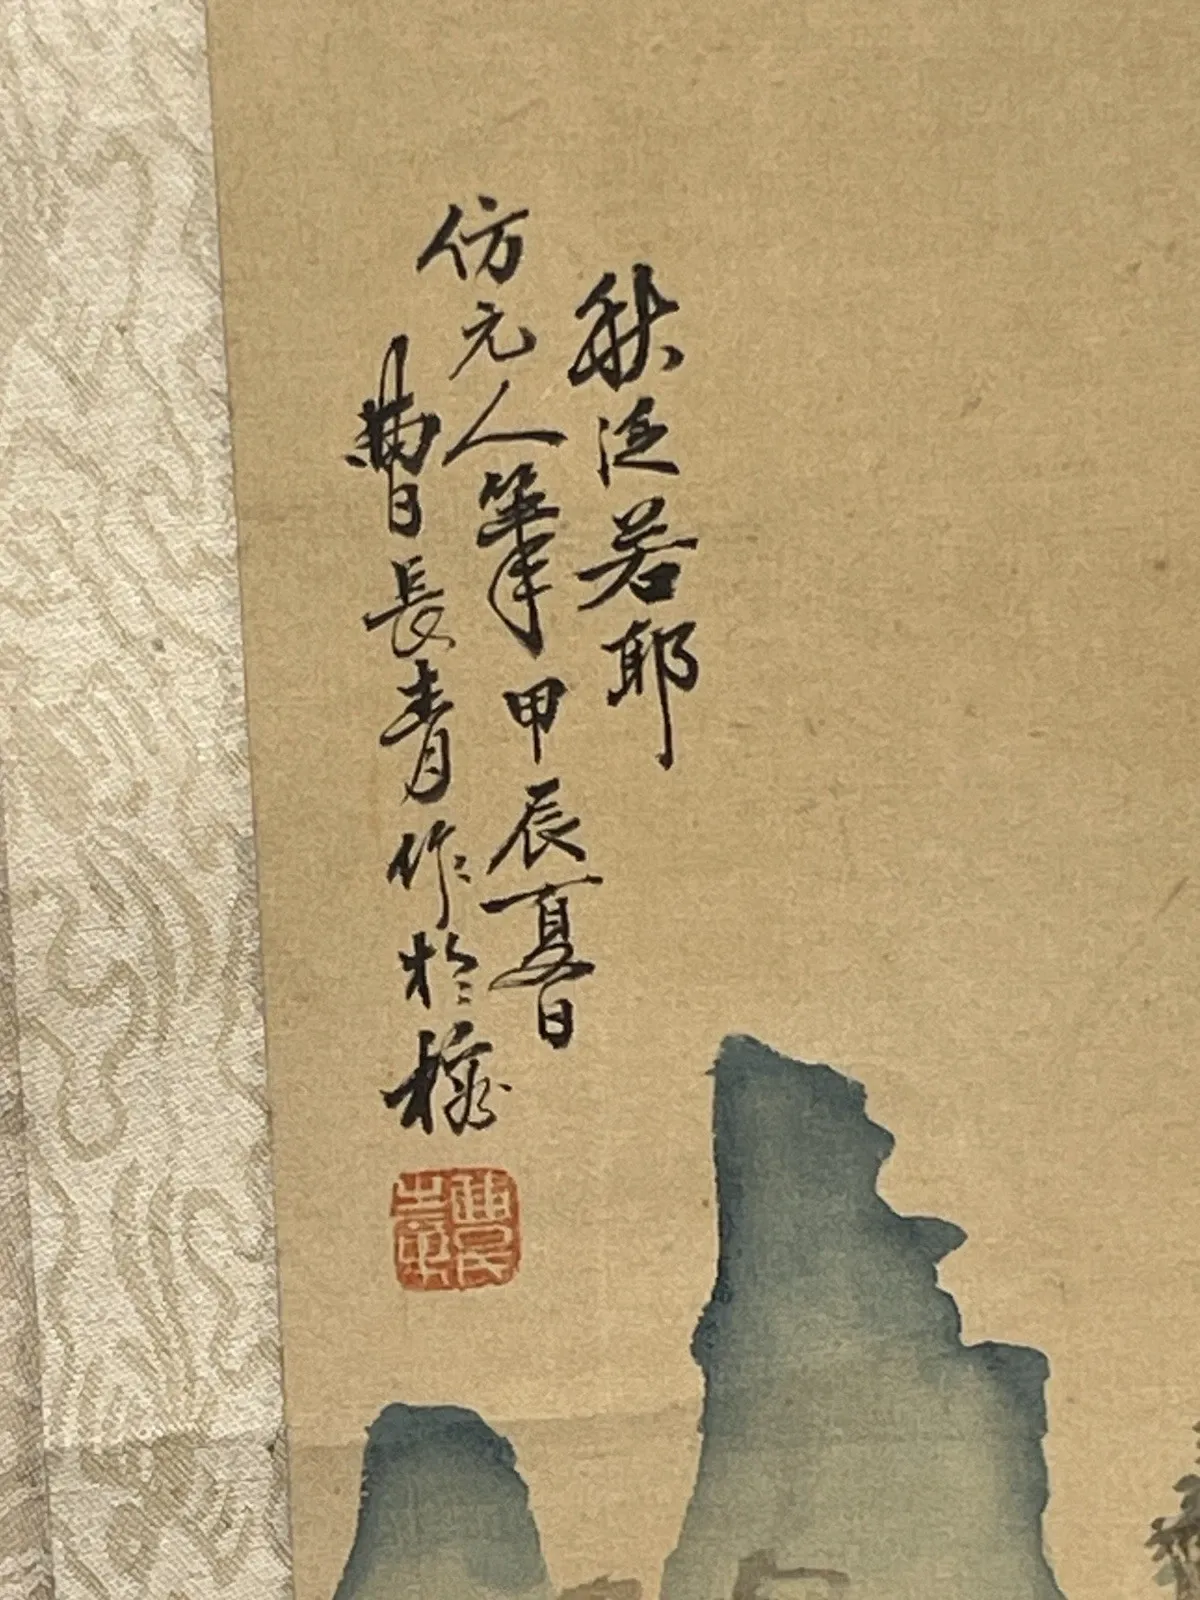 秋泛若耶
仿元人筆甲辰夏日
曹長青作於穗
曹氏